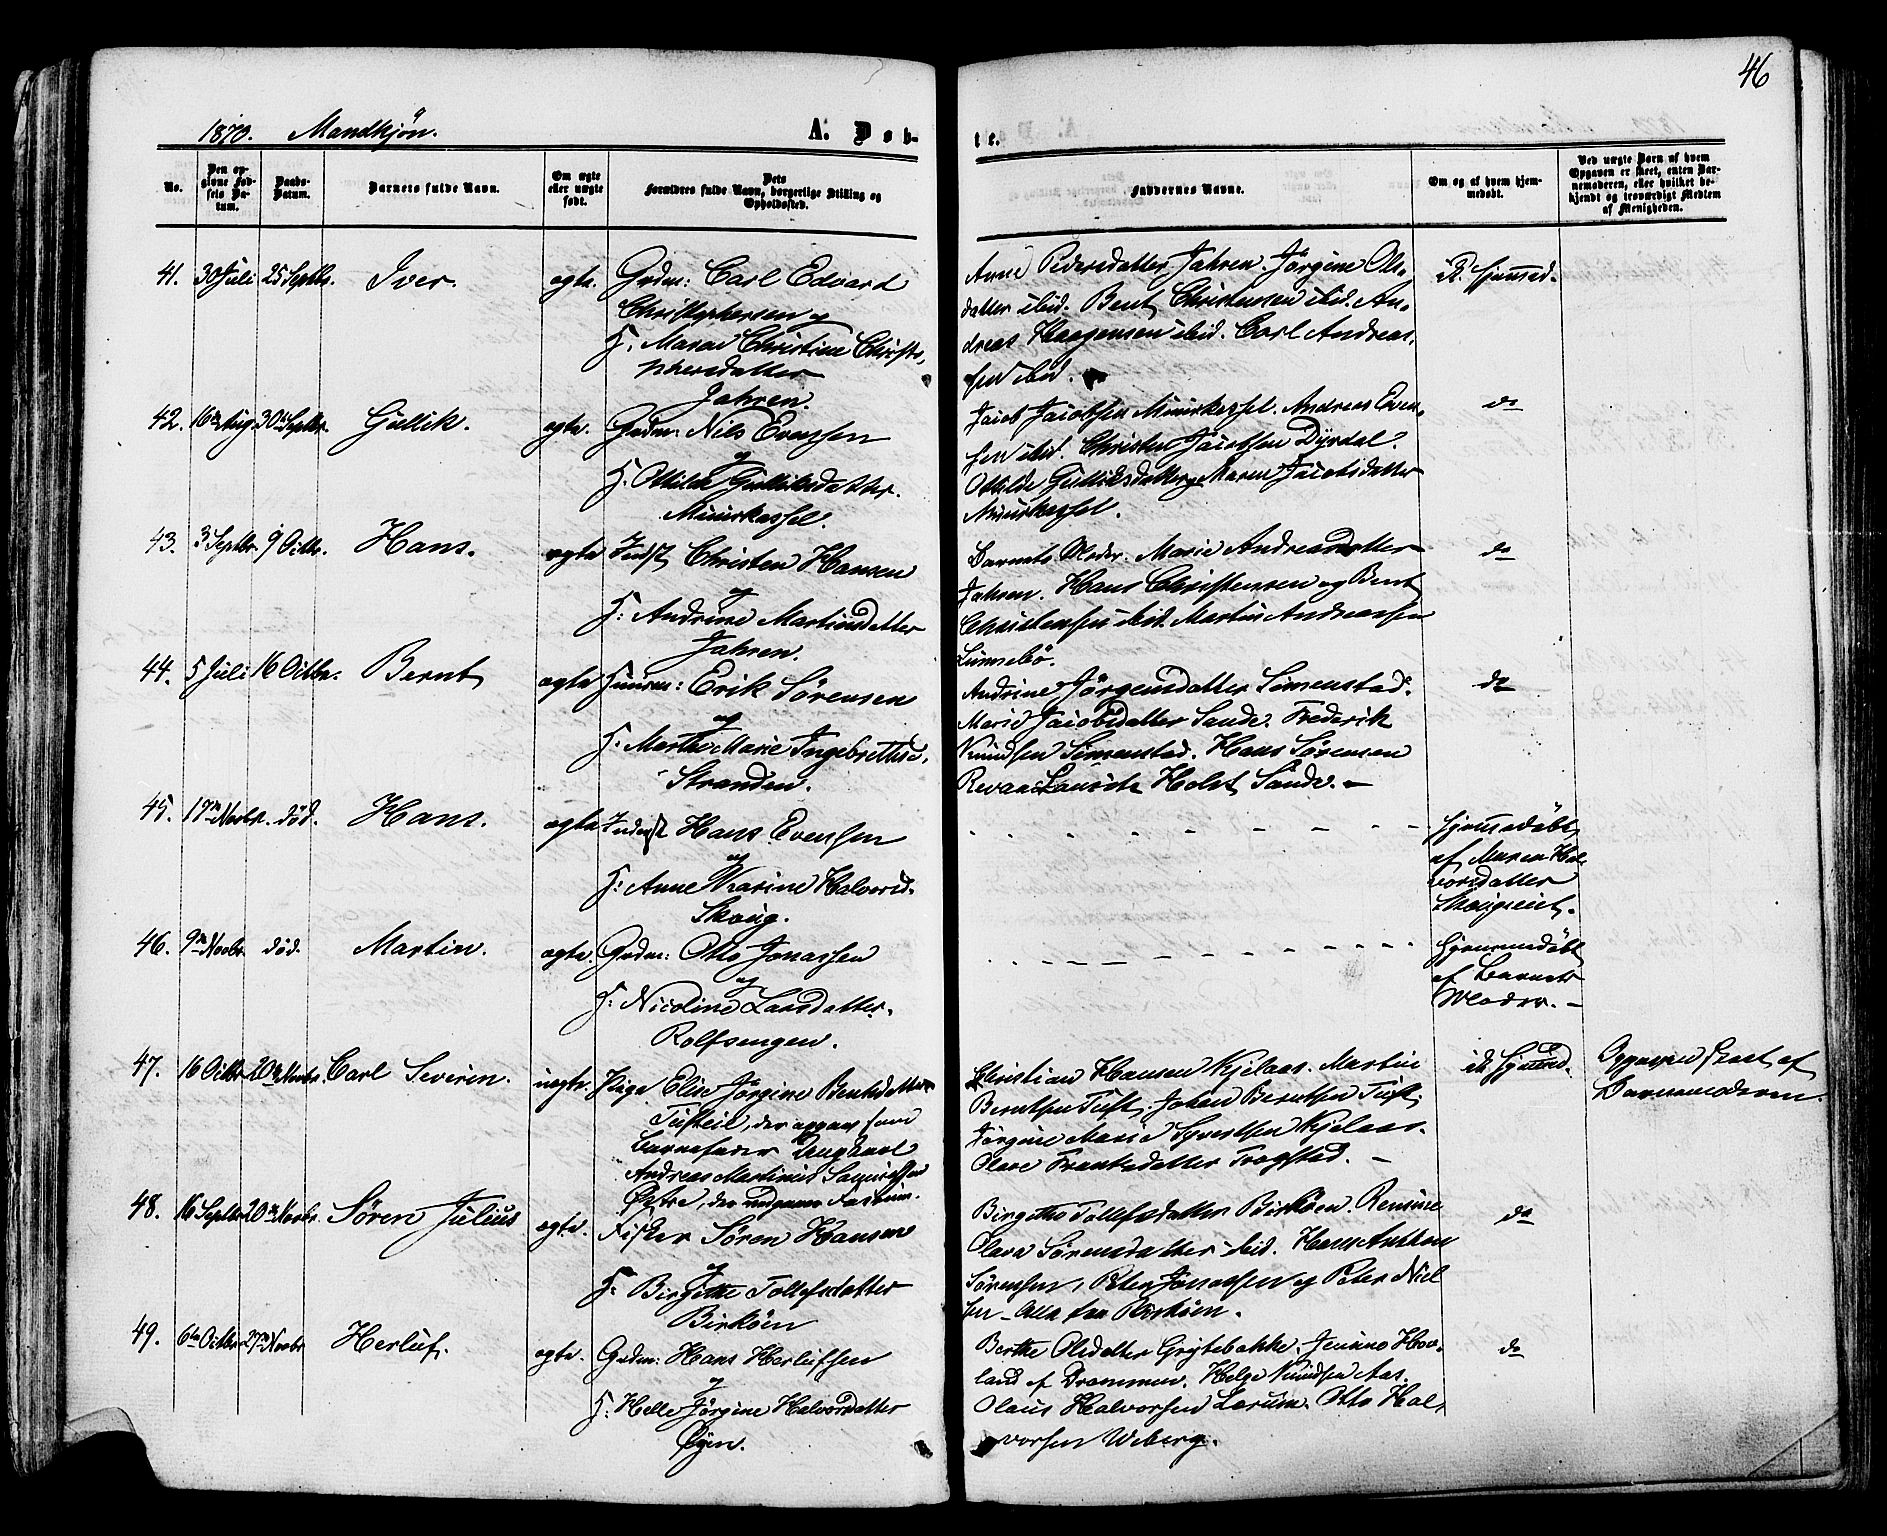 46
1870. Mandkjön. A. Døb-
te.
No.
Den op-
givne Fød-
sels Da-
tum.
Daabs-
Datum.
Barnets fulde Navn.
Om ægte
eller uægte
født.
Dets
Forældres fulde Navn, borgerlige Stilling og
Opholdssted.
Faddernes Navne.
Om og af hvem hjem-
medøbt.
Ved uægte Barn af hvem
Opgaven er skeet, enten Bar-
nemoderen, eller hvilket be-
kjendt og troværdigt Medlem
af Menigheden.
41. 30 Juli 25 Septbr. Iver. ægte. Grdm: Carl Edvard
Christophersen og
H. Maren Christine Christo-
phersdatter
Jahren.
Anne Pedersdatter Jahren. Jørgine Ols-
datter ibid. Bent Christensen ibid. An-
dreas Haagensen ibid. Carl Andreas-
sen ibid.
42. 16de Aug. 30te Septbr. Gullik. ægte. Grdm: Nils Evensen
og
H. Othilde Gulliksdatter.
Muurkassel.
Jacob Jacobsen Muurkassel. Andreas Even-
sen ibid. Christen Jacobsen Dyrdal.
Othilde Gulliksdatter og Maren Jacobsdatter
Muurkassel.
do
43. 3 Septbr. 9 Octbr. Hans. ægte Inderst Christen Hansen
og
H: Andrine Martinsdatter
Jahren.
Barnets Moder. Marie Andreasdatter
Jahren. Hans Christensen og Bent
Christensen ibid. Martin Andreassen
do
44. 5 Juli 16 Octbr. Bernt ægte Huusm: Erik Sørensen
og
H: Marthe Marie Ingebretths.
Stranden.
Andrine Jørgensdatter Simenstad.
Marie Jacobsdatter Sande. Frederik
Knudsen Simenstad. Hans Sørensen
Revaa. Lauritz Holst Sande. –
do
45. 19de Novbr. død. Hans. ægte Inderst Hans Evensen
og
H: Anne Karine Halvorsd.
Skoug.
Hjemmedøbt
af Maren Hal-
vorsdatter
46. 9de Novbr død. Martin. ægte. Grdm: Otto Jonassen
og
H: Nicoline Larsdatter.
Rolfsengen.
Hjemmedøbt
af Barnets
Moder. –
47. 16 Octbr. 20de Novbr. Carl Severin. uægte. Pige Elise Jørgine Berntsdatter
der opgav som
Barnefader Ungkarl
Andreas Martinus
Østre, der
Christian Hansen Kjelaas. Martin
Berntsen Tuft. Johan Berntsen Tuft.
Jørgine Marie Kjelaas.
Olave Frantsdatter Trogstad. –
Opgaven skeet af
Barnemoderen.
48. 16 Septbr 20de Novbr. Søren Julius ægte. Fisker Søren Hansen
og
H: Birgithe Tollefsdatter
Birköen
Birgithe Tollefsdatter Birköen.
Olava Sørensdatter ibid. Hans Anthon
Sørensen, Peter Jonassen og Peter Niel-
sen – alle fra Birköen.
do
49. 6te Octbr 27de Novbr Herluf. ægte. Grdm: Hans Herlufsen
og
H: Helle Jørgine Halvorsdatter
Øyen.
Berthe Olsdatter Grytebakke. Hov-
land af Drammen. Helge Knudsen Aas.
Olaus Halvorsen Lerum. Otto Hal-
vorsen Weberg.
do